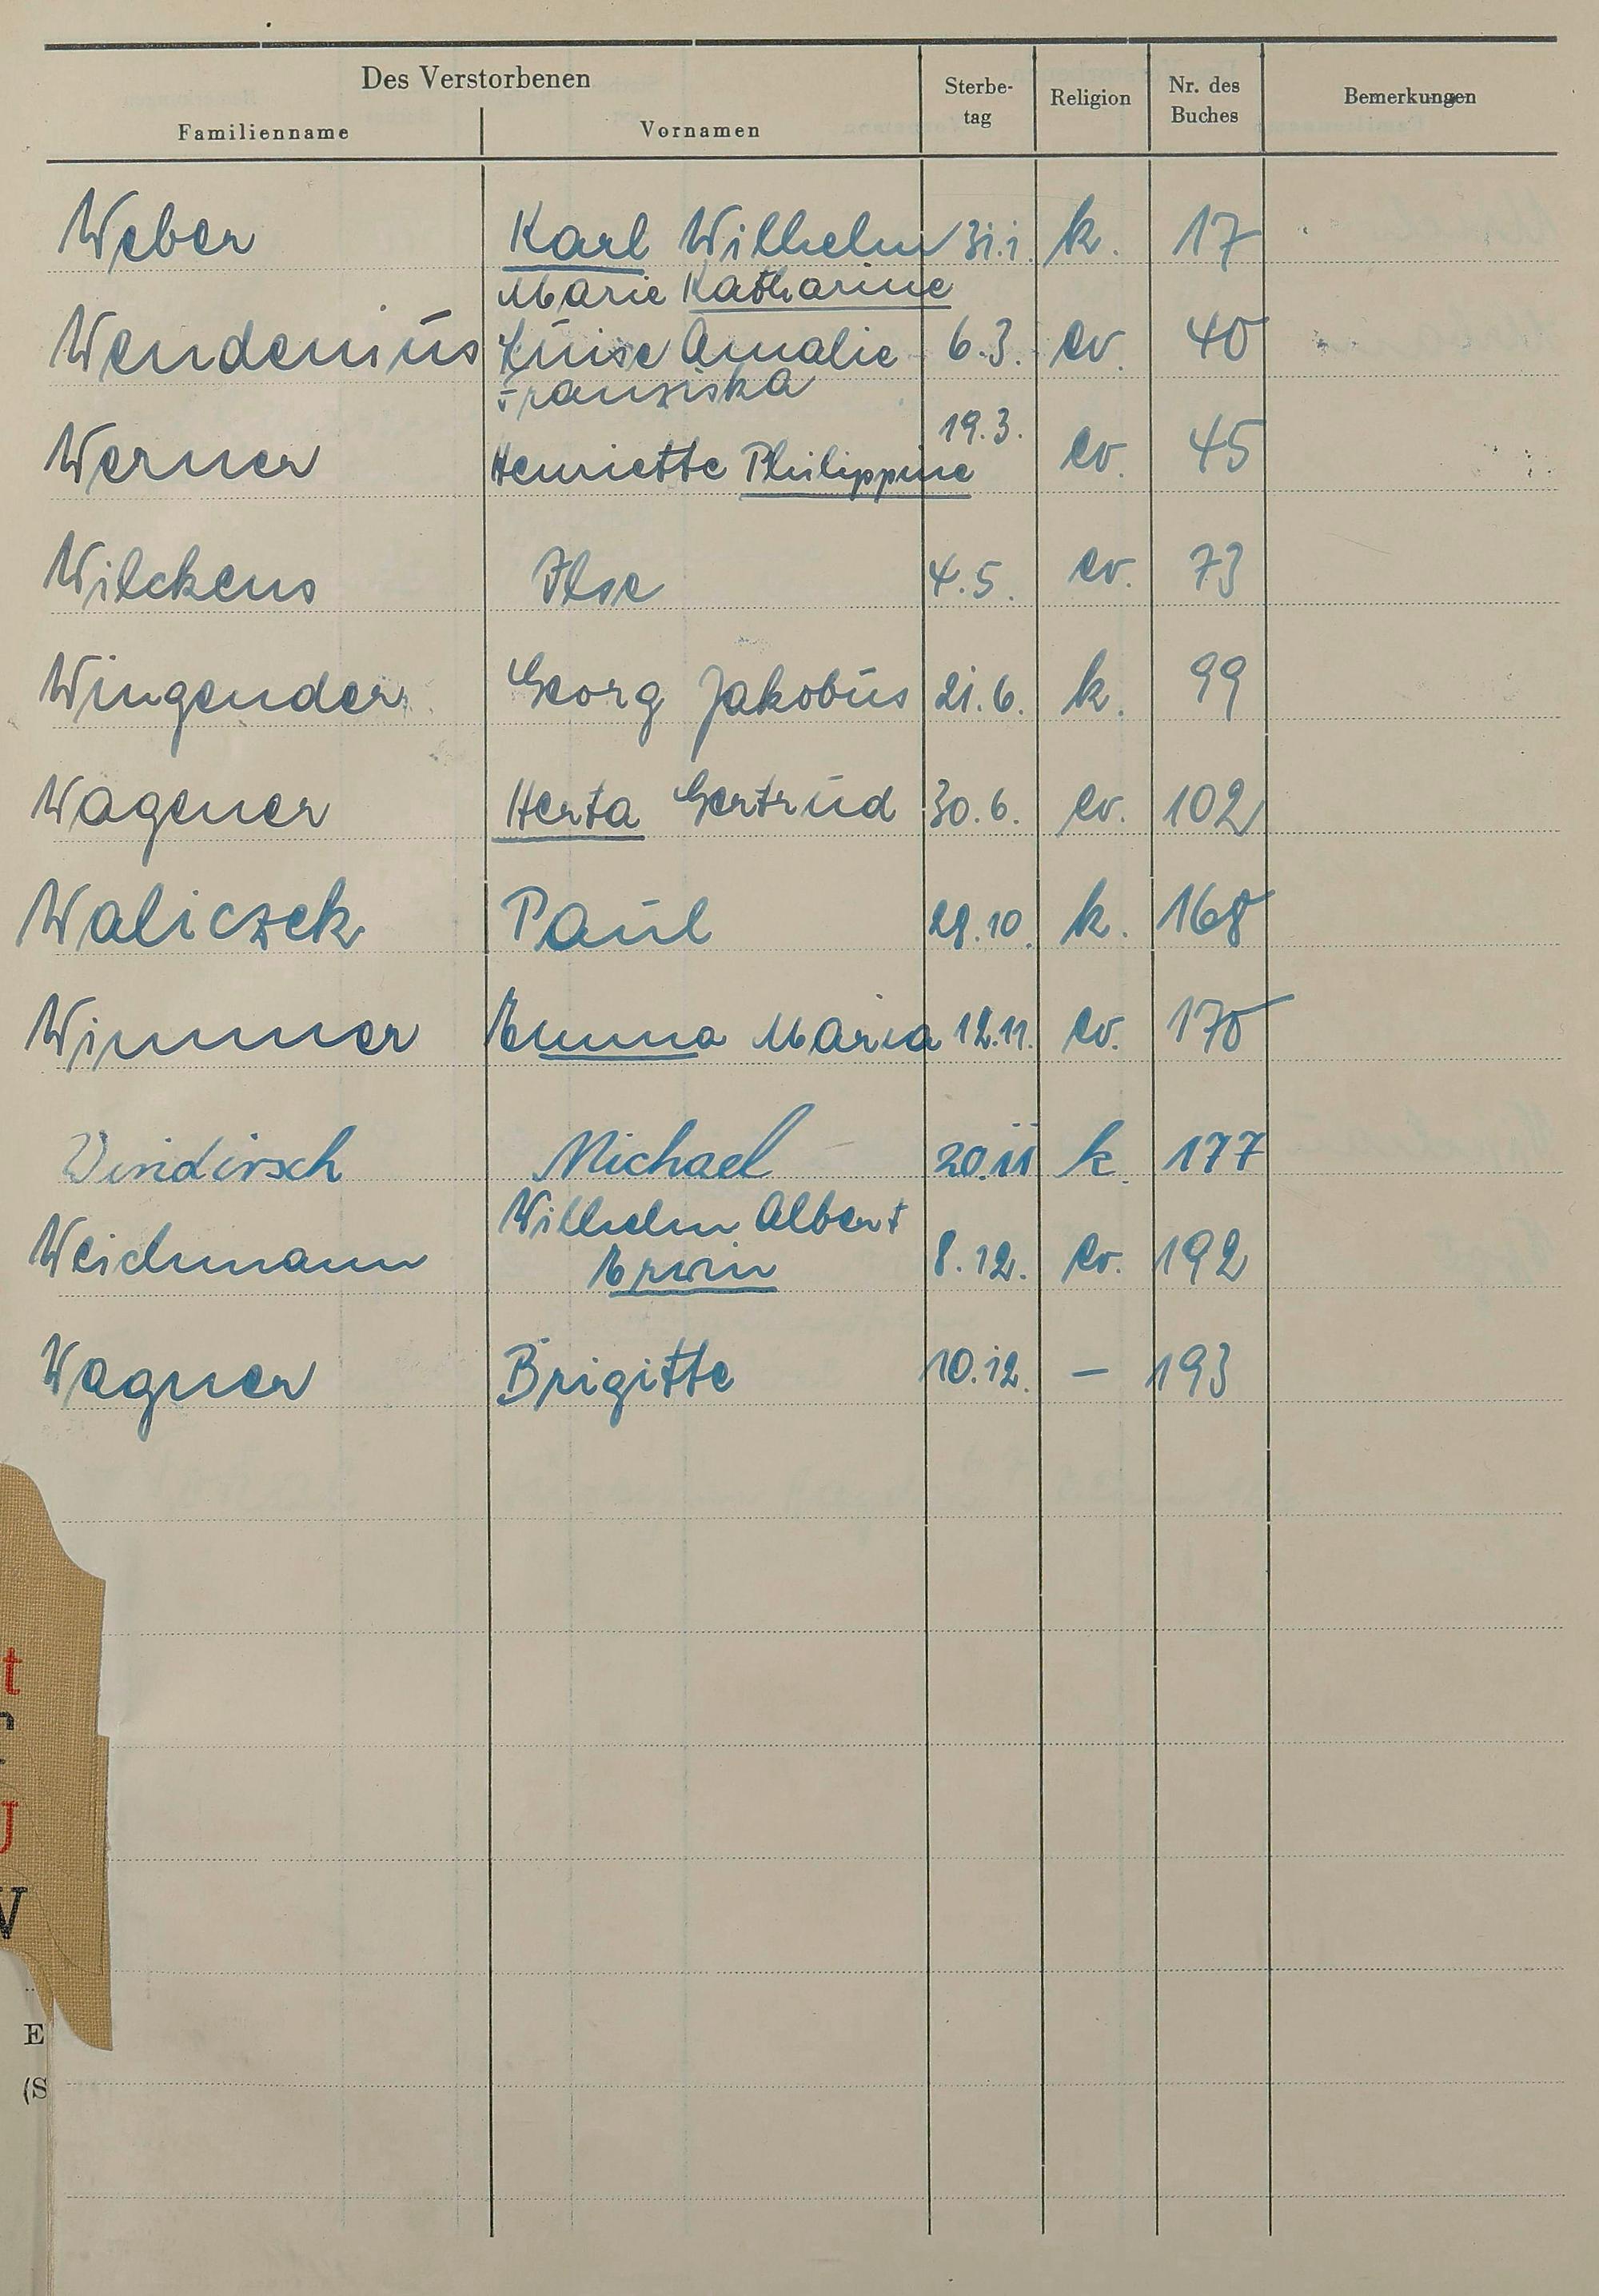 Des Verstorbenen
Familienname Vornamen Sterbe- tag Religion Nr. des Buches Bemerkungen
Weber Karl Wilhelm 31.1. k. 17
Marie Katharine
Wendenius Luise Amalie 6.3. ev. 40
Franziska
Werner Henriette Philippine 19.3. ev. 45
Wilckens Ilse 4.5. ev. 73
Wingender Georg Jakobus 21.6. k. 99
Wagener Herta Gertrud 30.6. ev. 102
Waliczek Paul 28.10. k. 168
Wimmer Emma Maria 12.11. ev. 170
Windirsch Michael 20.11 k. 177
Wilhelm Albert
Weichmann Erwin 8.12. ev. 192
Wagner Brigitte 10.12. – 193
t
J
W
E
(S